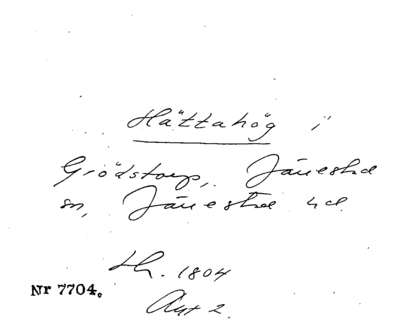 Hättahög i
Grödstorp, Järrestad
sn, Järrestad hd.
Lh. 1804
Akt 2.
Nr 7704.